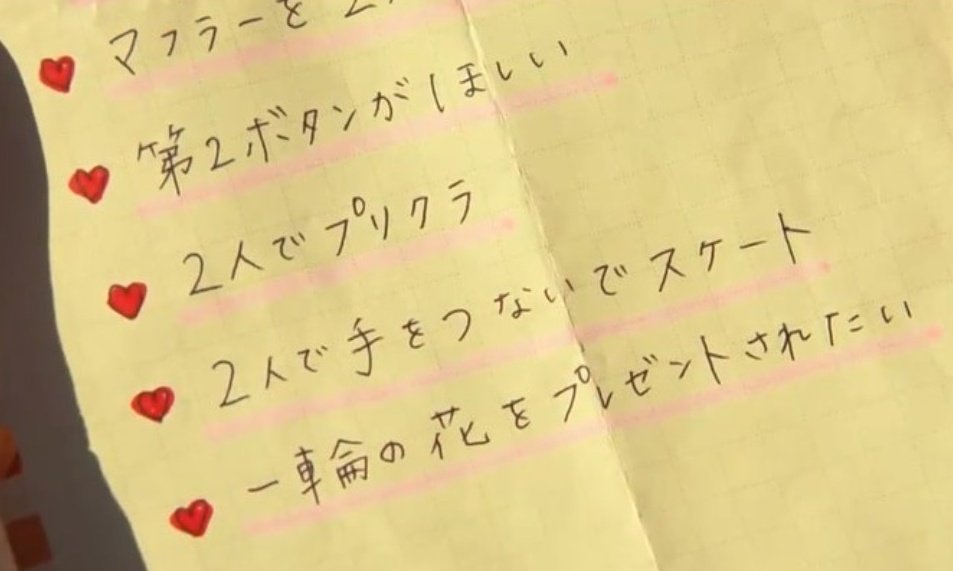 マフラーを2
第2ボタンがほしい
2人でプリクラ
2人で手をつないでスケート
一輪の花をプレゼントされたい